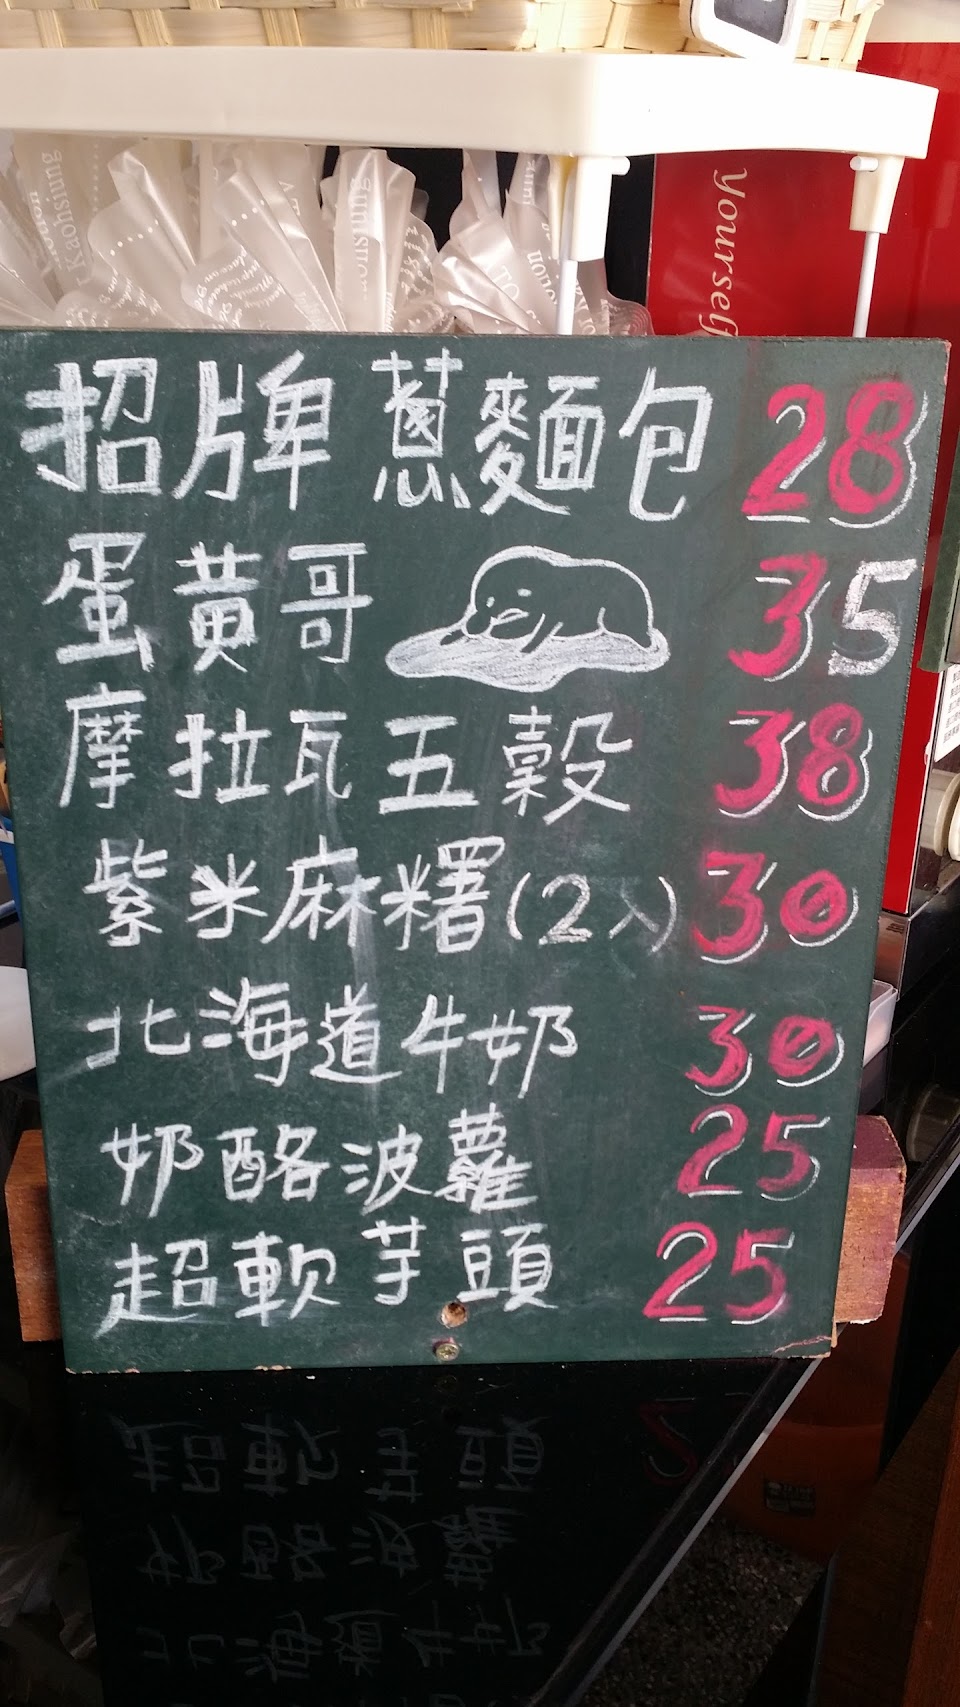 Kaohsiung
Yourself
招牌 蔥麵包 28
蛋黃哥 35
摩拉瓦五穀 38
紫米麻糬(2入) 30
北海道牛奶 30
奶酪波蘿 25
超軟芋頭 25